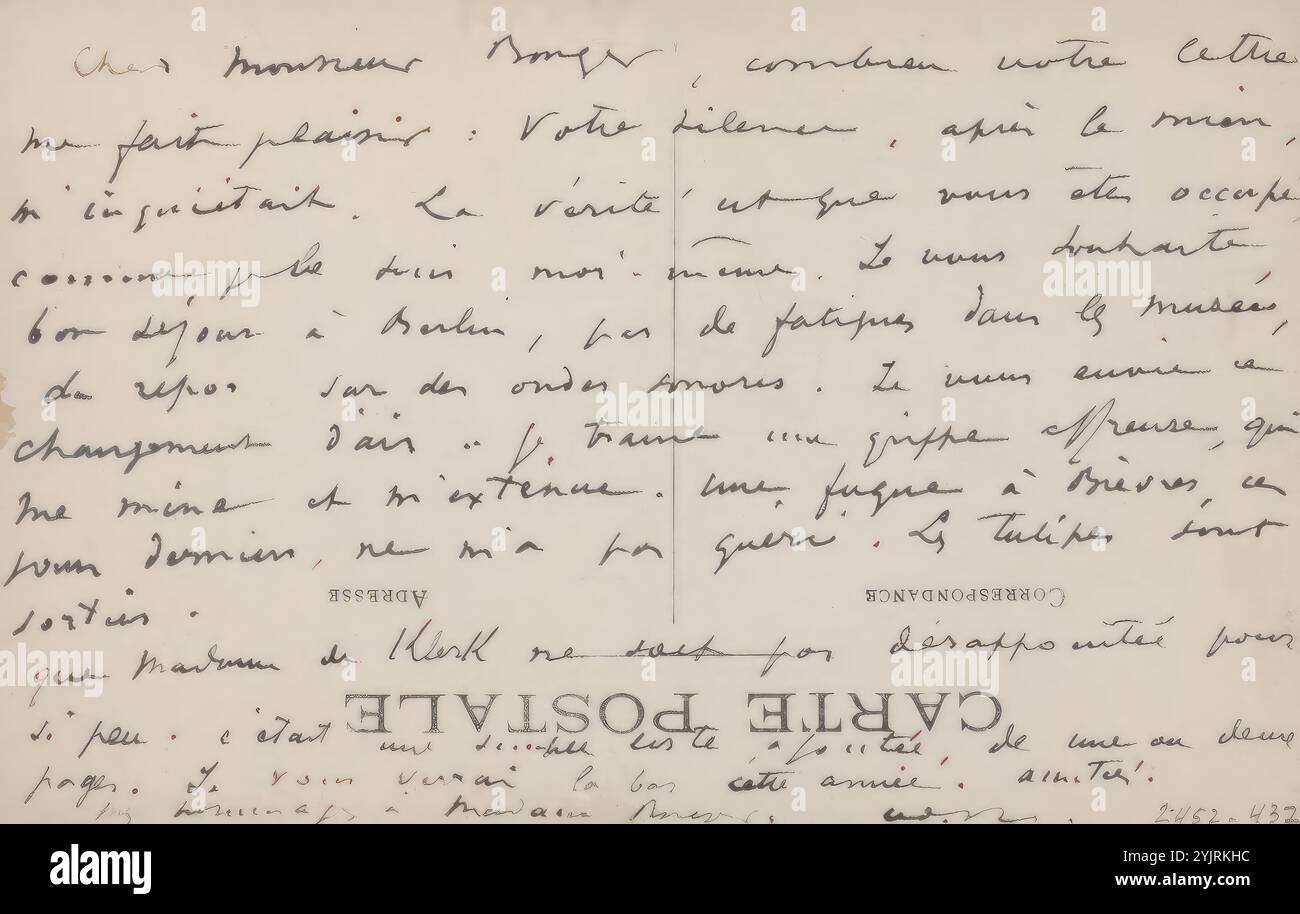 Cher Monsieur Bonger, combien votre lettre
me fait plaisir : Votre silence, après le mien,
m'inquiétait. La vérité est que vous êtes occupé,
comme je le suis moi-même. Je vous souhaite
bon séjour à Berlin, pas de fatigues dans les musées,
du repos sur des ondes sonores. Je vous envie ce
changement d'air .. je traine une grippe affreuse, qui
me mine et m'exténue. Une fugue à Bièvres, ces
jours derniers, ne m'a pas guéri. Les tulipes sont
sorties.
ADRESSE CORRESPONDANCE
que Madame de Klerk ne soit pas désappointée pour
CARTE POSTALE
si peu. c'était une simple liste ajoutée, de une ou deux
pages. Je vous verrai là bas cette année. amitiés.
mes hommages à Madame Bonger.
2452-432
alamy
Image ID: 2YJRKHC
www.alamy.com